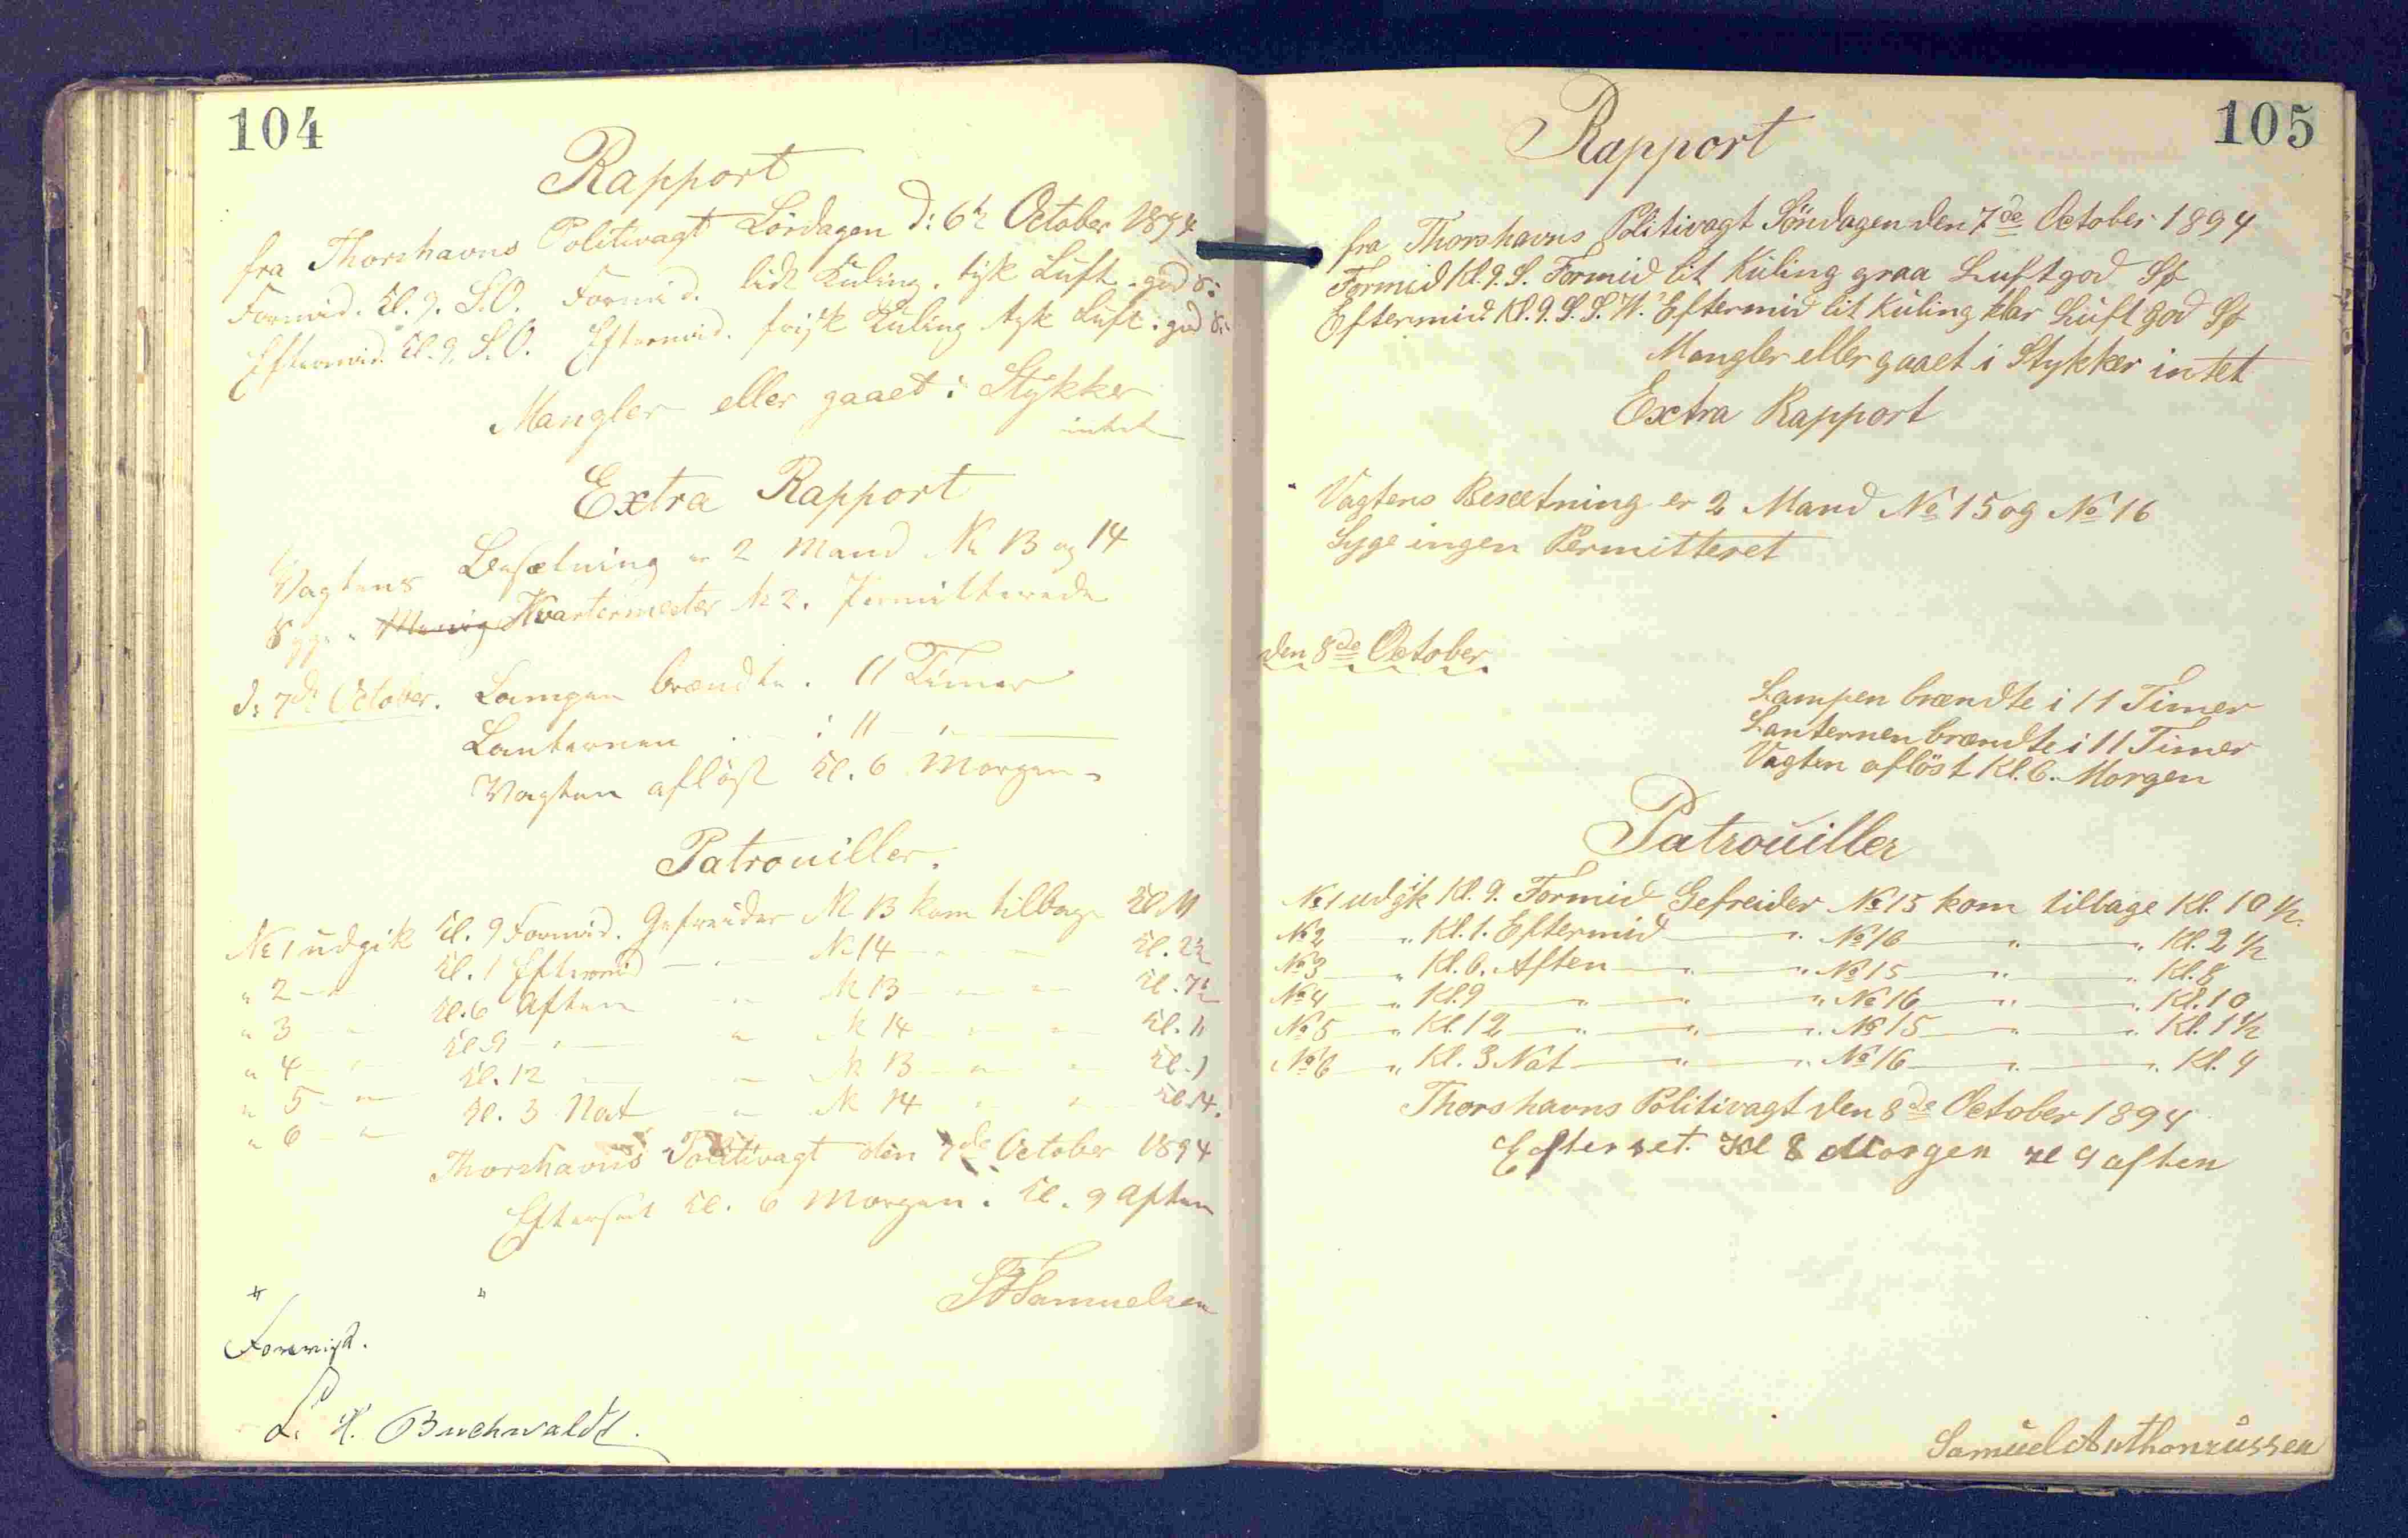 104
Rapport
fra Thorshavns Politivagt Lördagen d: 6te October 1894
Formid. Kl. 9. S.O. Formid. lidt Kuling. tyk Luft. god S:
Eftermid. Kl. 9. S.O. Eftermid. frisk Kuling tyk Luft: god S:
Mangler eller gaaet i Stykker
intet
Extra Rapport
Vagtens Besætning er 2 Mand No 13 og 14
Syge " Menig Kvartermester No 2. Permitterede
d: 7de October. Lampen brændte. 11 Timer
Lanternen " i 11 "
Vagten aflöst Kl. 6 Morgen
Patrouiller.
No 1 udgik Kl. 9 Formid. Gefreider No 13 kom tilbage Kl. 11
" 2 " Kl. 1 Eftermid " No 14 " " Kl. 2½
" 3 " Kl. 6 Aften " No 13 " " Kl. 7½
" 4 " Kl. 9 " " No 14 " " Kl. 11
" 5 " Kl. 12 " No 13 " " Kl. 1
" 6 " Kl. 3 Nat " No 14 " " Kl. 4.
Thorshavns Politivagt den 7de October 1894
Efterset Kl. 6 Morgen. Kl. 9 Aften
Samuelsen
Forevist.
L. H. Buchwaldt.
105
Rapport
fra Thorshavns Politivagt Söndagen den 7de October 1894
Formid Kl. 9. S. Formid lit Kuling graa Luft god Sø
Eftermid Kl. 9. S.S.W. Eftermid lit Kuling klar Luft god Sø
Mangler eller gaaet i Stykker intet
Extra Rapport
Vagtens Besætning er 2 Mand No 15 og No 16
Syge ingen Permitteret
den 8de October
Lampen brændte i 11 Timer
Lanternen brændte i 11 Timer
Vagten aflöst Kl. 6. Morgen
Patrouiller
No 1 udgik Kl. 9. Formid Gefreider No 15 kom tilbage Kl. 10 1/2.
No 2 " Kl. 1. Eftermid " No 16 " " Kl. 2 1/2
No 3 " Kl. 6. Aften " " No 15 " " Kl. 8
No 4 " Kl. 9 " " " No 16 " " Kl. 10
No 5 " Kl. 12 " " " No 15 " " Kl. 1 1/2
No 6 " Kl. 3 Nat " " No 16 " " Kl. 4
Thorshavns Politivagt den 8de October 1894
Efterset. Kl 8 Morgen Kl 9 aften
Samuel Anthoniussen